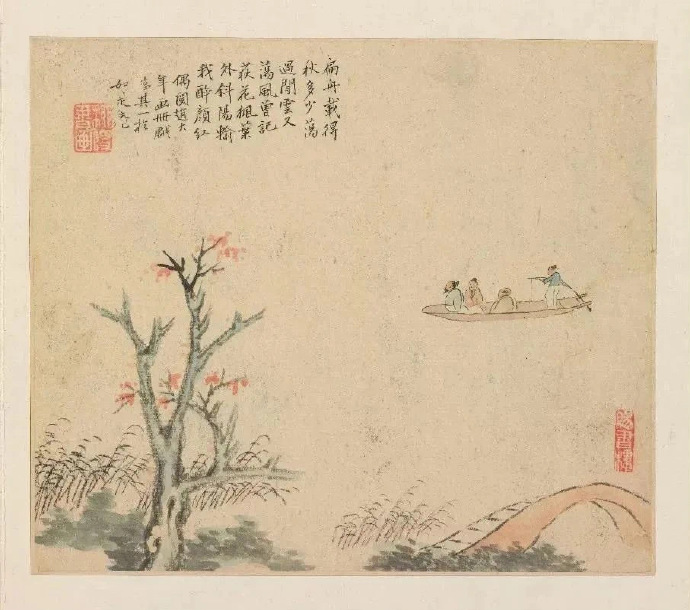 扁舟載得
秋多少蕩
過閒雲又
蕩風曾記
荻花楓葉
外斜陽輸
我醉顏紅
偶閱趙大
年畫冊戲
其一